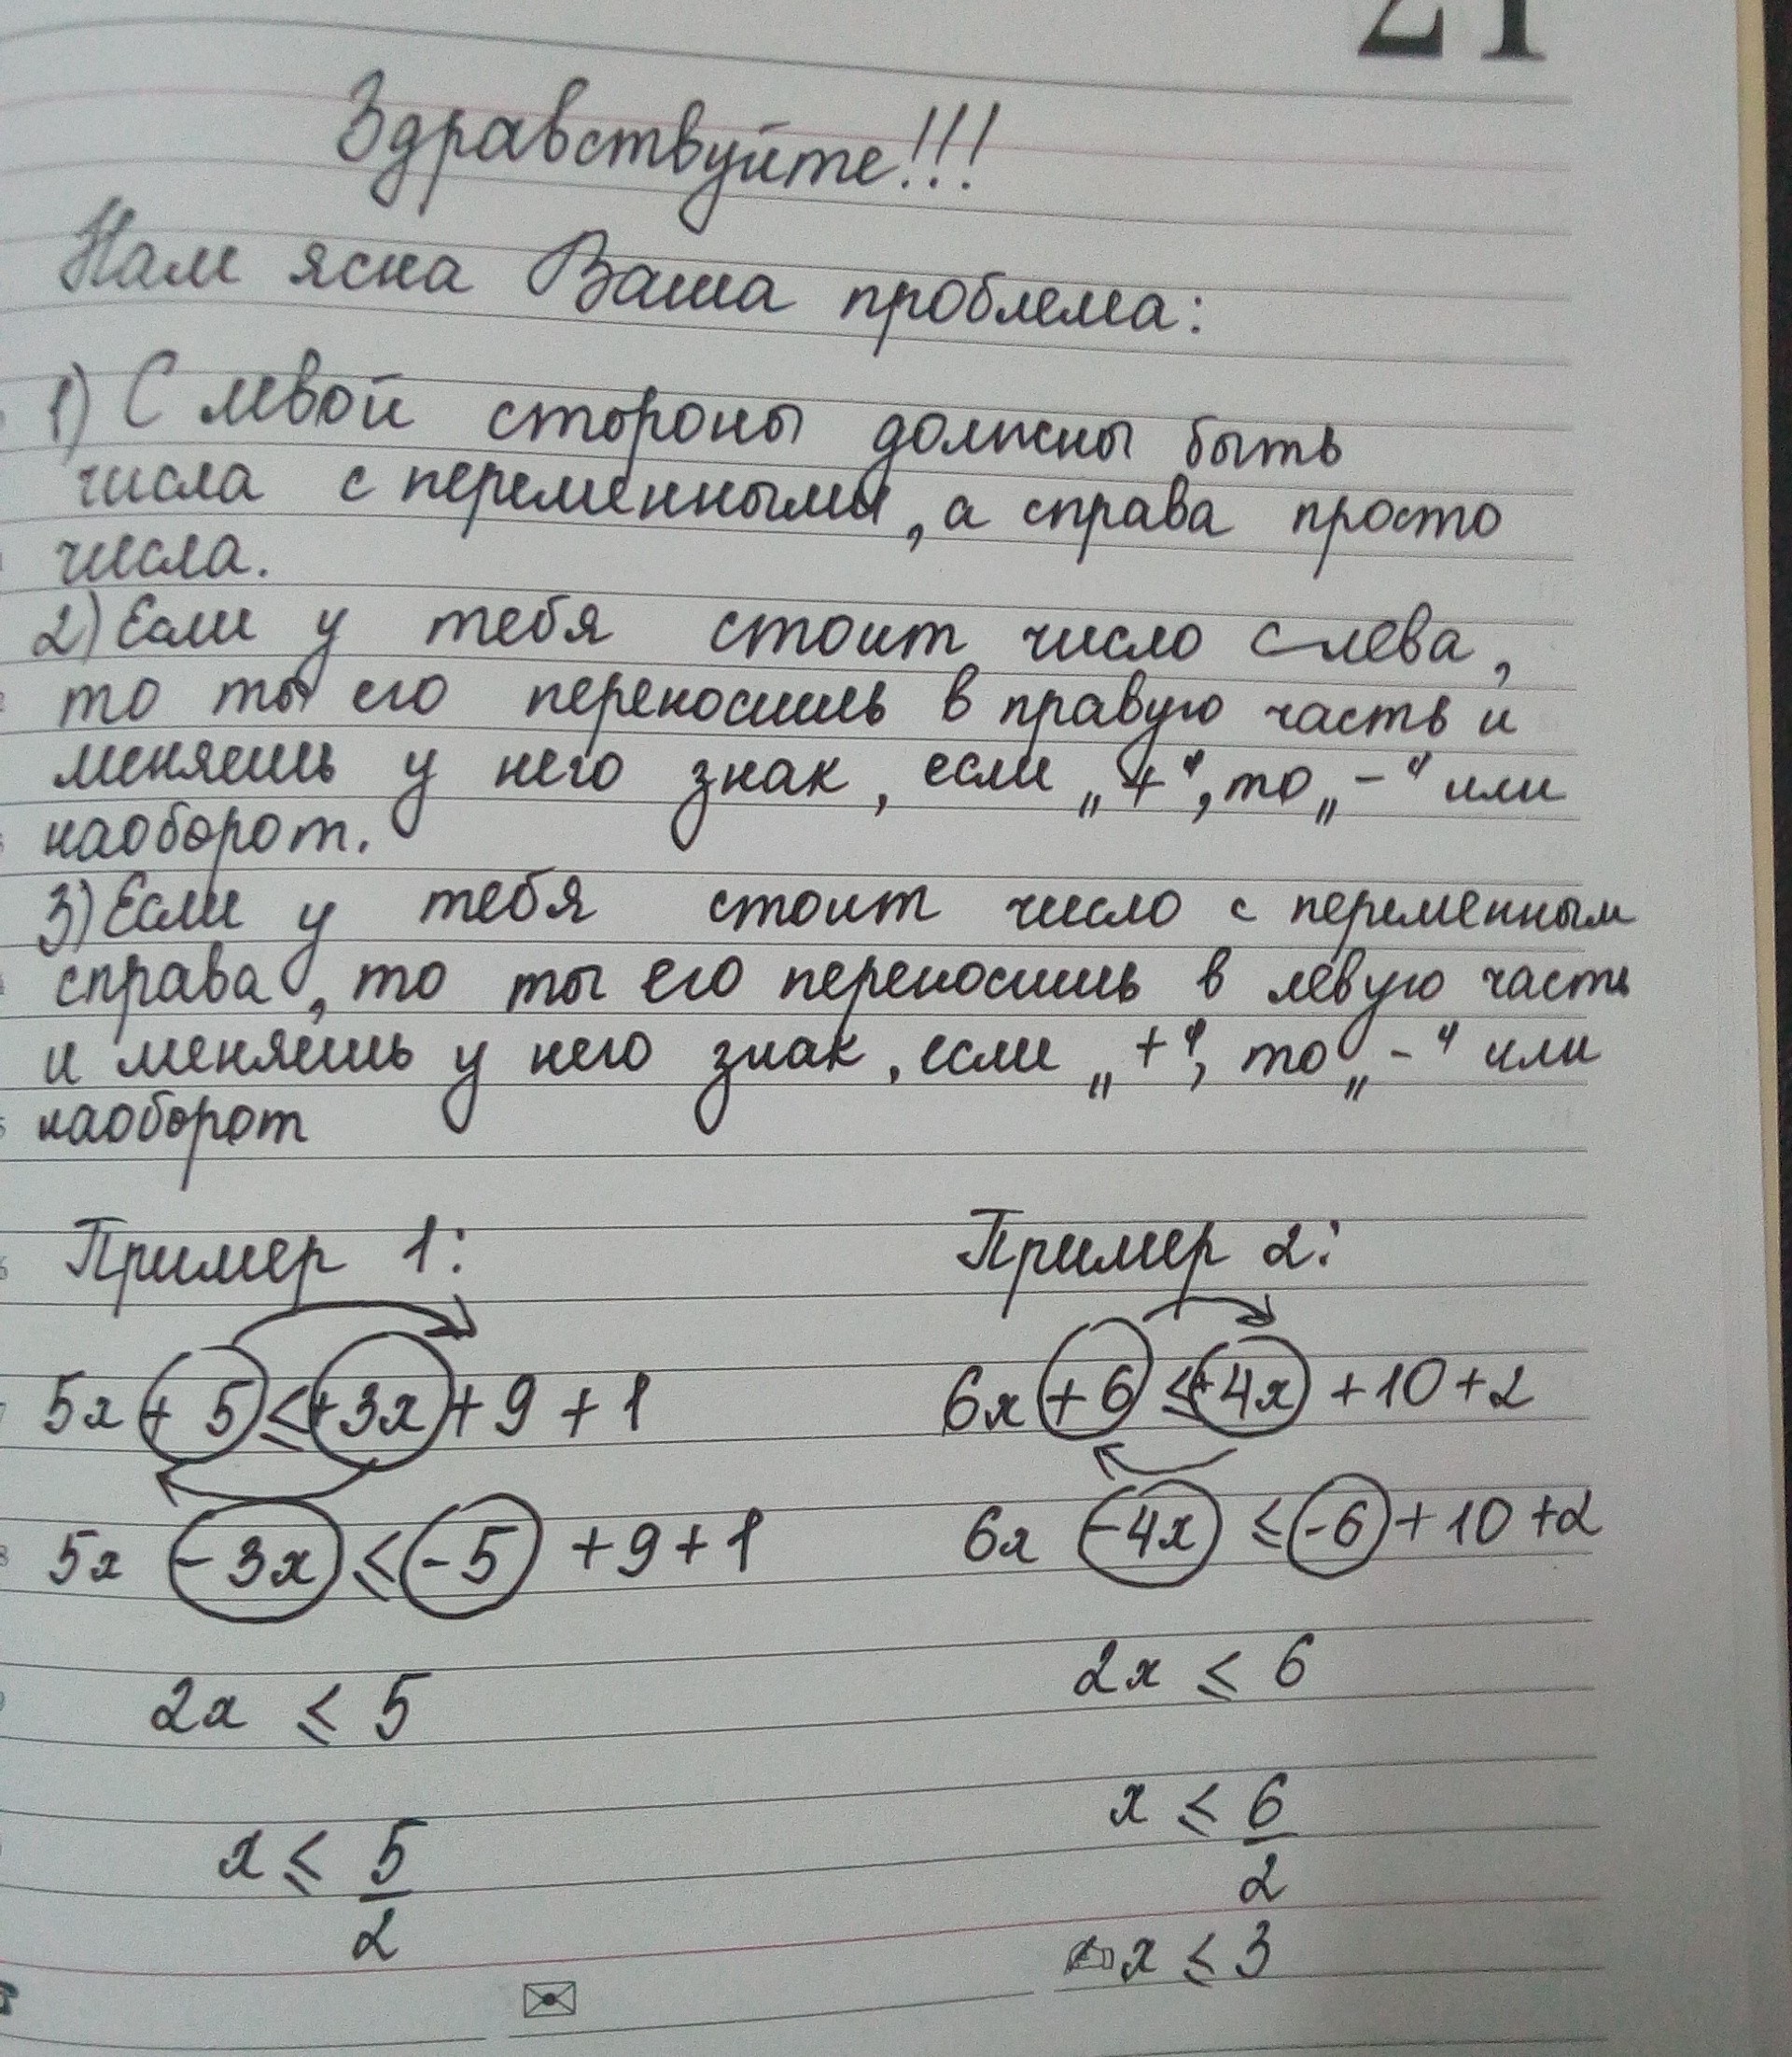 21
Здравствуйте!!!
Нам ясна Ваша проблема:
1) С левой стороны должны быть
числа с переменными, а справа просто
числа.
2) Если у тебя стоит число слева,
то ты его переносишь в правую часть и
меняешь у него знак, если „+“, то „-“ или
наоборот.
3) Если у тебя стоит число с переменным
справа, то ты его переносишь в левую часть
и меняешь у него знак, если „+“, то „-“ или
наоборот
Пример 1:
5x + 5 ≤ +3x + 9 + 1
5x - 3x ≤ -5 + 9 + 1
2x ≤ 5
x ≤ 5/2
Пример 2:
6x + 6 ≤ +4x + 10 + 2
6x - 4x ≤ -6 + 10 + 2
2x ≤ 6
x ≤ 6/2
x ≤ 3